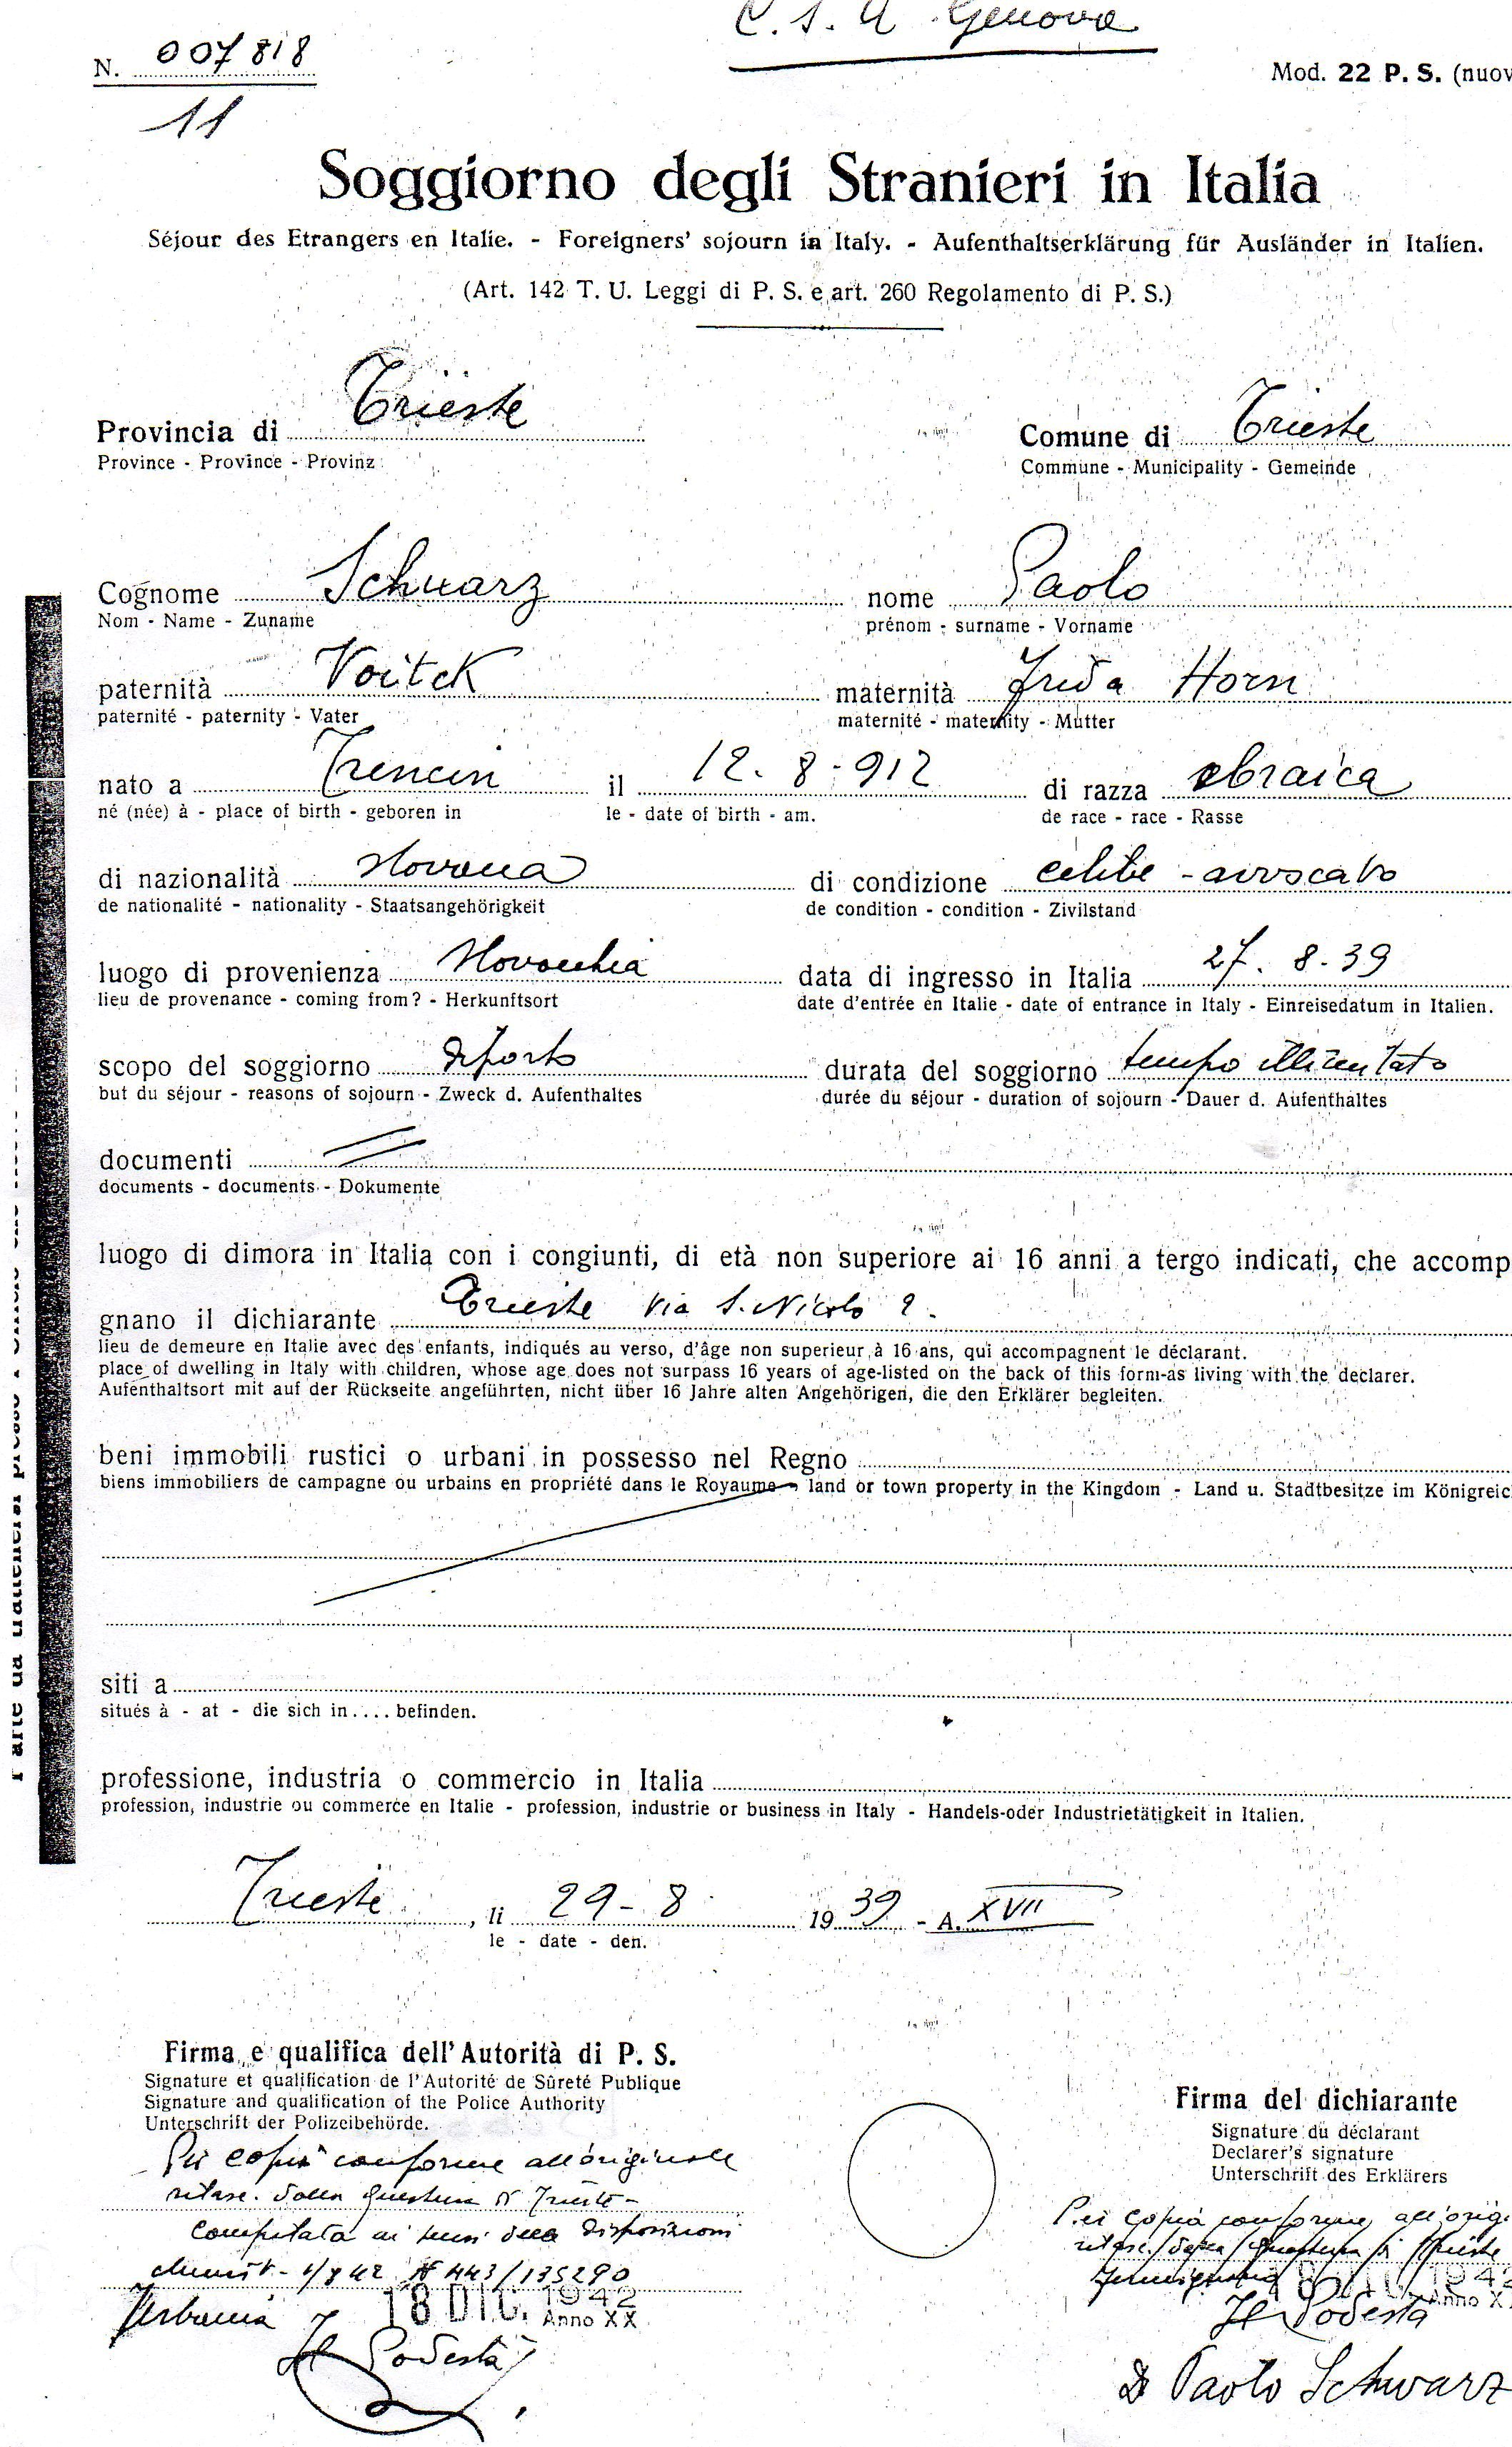 C. S. A Genova
N. 007818
Mod. 22 P. S. (nuov
11
Soggiorno degli Stranieri in Italia
Séjour des Etrangers en Italie. - Foreigners' sojourn in Italy. - Aufenthaltserklärung für Ausländer in Italien.
(Art. 142 T. U. Leggi di P. S. e art. 260 Regolamento di P. S.)
Provincia di Trieste Comune di Trieste
Province - Province - Provinz Commune - Municipality - Gemeinde
Cognome Schwarz nome Paolo
Nom - Name - Zuname prénom - surname - Vorname
paternità Voitek maternità Frida Horn
paternité - paternity - Vater maternité - maternity - Mutter
nato a Trencin il 12. 8 - 912 di razza ebraica
né (née) à - place of birth - geboren in le - date of birth - am. de race - race - Rasse
di nazionalità slovacca di condizione celibe - avvocato
de nationalité - nationality - Staatsangehörigkeit de condition - condition - Zivilstand
luogo di provenienza Slovacchia data di ingresso in Italia 27. 8 - 39
lieu de provenance - coming from? - Herkunftsort date d'entrée en Italie - date of entrance in Italy - Einreisedatum in Italien.
scopo del soggiorno diporto durata del soggiorno tempo illimitato
but du séjour - reasons of sojourn - Zweck d. Aufenthaltes durée du séjour - duration of sojourn - Dauer d. Aufenthaltes
documenti
documents - documents - Dokumente
luogo di dimora in Italia con i congiunti, di età non superiore ai 16 anni a tergo indicati, che accomp
gnano il dichiarante Trieste Via S. Nicolò 2.
lieu de demeure en Italie avec des enfants, indiqués au verso, d'âge non superieur à 16 ans, qui accompagnent le déclarant.
place of dwelling in Italy with children, whose age does not surpass 16 years of age-listed on the back of this form-as living with the declarer.
Aufenthaltsort mit auf der Rückseite angeführten, nicht über 16 Jahre alten Angehörigen, die den Erklärer begleiten.
beni immobili rustici o urbani in possesso nel Regno
biens immobiliers de campagne ou urbains en propriété dans le Royaume - land or town property in the Kingdom - Land u. Stadtbesitze im Königreic
siti a
situés à - at - die sich in.... befinden.
professione, industria o commercio in Italia
profession, industrie ou commerce en Italie - profession, industrie or business in Italy - Handels-oder Industrietätigkeit in Italien.
Trieste, li 29 - 8 1939 - A. XVII
le - date - den.
Firma e qualifica dell'Autorità di P. S.
Signature et qualification de l'Autorité de Sûreté Publique
Signature and qualification of the Police Authority
Unterschrift der Polizeibehörde.
Firma del dichiarante
Signature du déclarant
Declarer's signature
Unterschrift des Erklärers
Per copia conforme all'originale
rilasc. dalla Questura di Trieste -
Compilata ai sensi delle disposizioni
minist - 1/8 42 N 443/135290
Urbania 18 DIC. 1942
Anno XX
Il Podestà
Per copia conforme all'orig.
rilasc. dalla Questura di Trieste
18 DIC 1942
Anno X
Il Podestà
D Paolo Schwarz